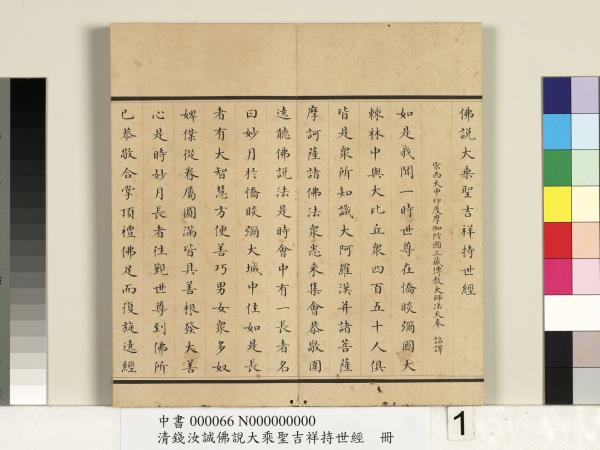 佛說大乘聖吉祥持世經
宋西天中印度摩伽陀國三藏傳教大師法天奉 詔譯
如是我聞一時世尊在憍睒彌國大
棘林中與大比丘眾四百五十人俱
皆是眾所知識大阿羅漢并諸菩薩
摩訶薩諸佛法眾悉來集會恭敬圍
遶聽佛說法是時會中有一長者名
曰妙月於憍睒彌大城中住如是長
者有大智慧方便善巧男女眾多奴
婢僕從眷屬圓滿皆具善根發大善
心是時妙月長者往觐世尊到佛所
已恭敬合掌頂禮佛足而復旋遶經
中書 000066 N000000000
清錢汝誠佛說大乘聖吉祥持世經 冊
1